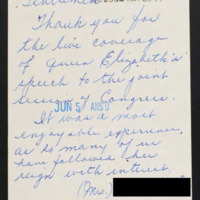 Gentlemen
Thank you for
the live coverage
of Queen Elizabeth's
speech to the joint
session of Congress.
JUN 5 ANS'D
It was a most
enjoyable experience,
as so many of us
have followed her
reign with interest.
(Mrs.)